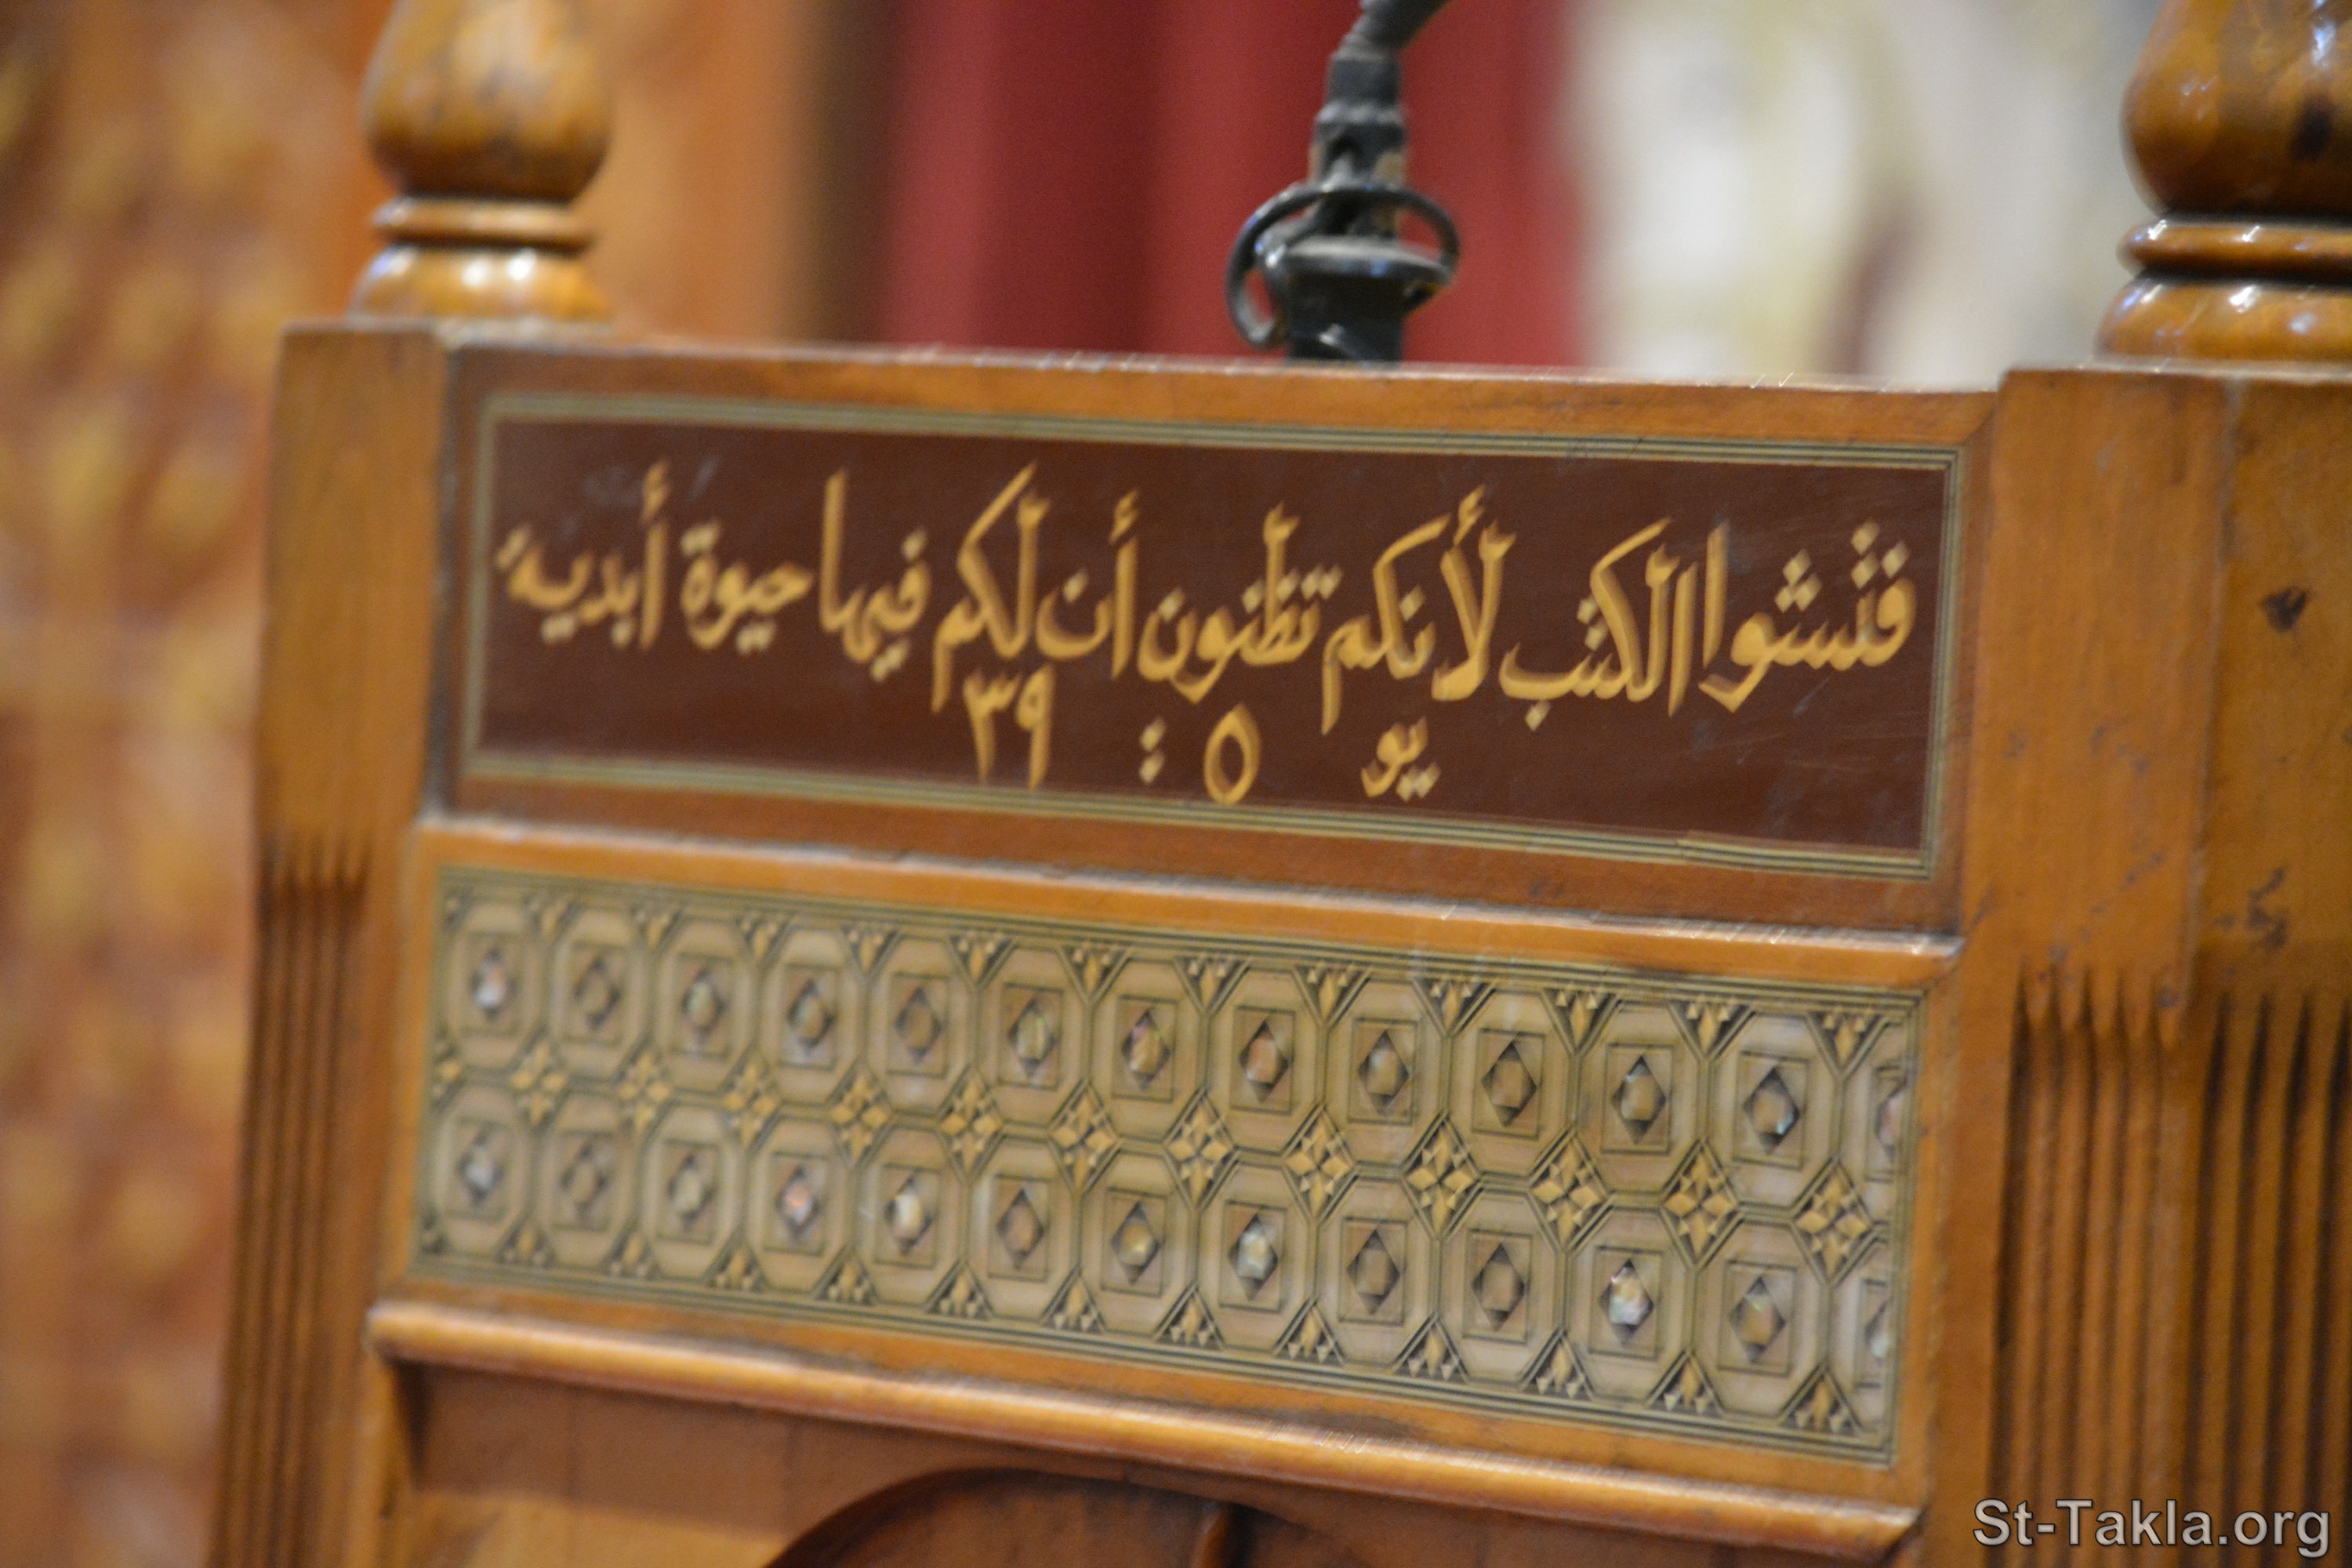 فتشوا الكتب لأنكم تظنون أن لكم فيها حيوة أبدية
يو ٥ : ٣٩
St-Takla.org